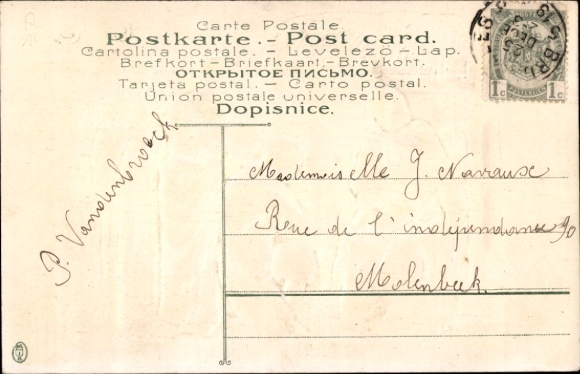 Carte Postale
Postkarte. - Post card.
Cartolina postale. - Levelezö - Lap.
Brefkort - Briefkaart - Brevkort.
ОТКРЫТОЕ ПИСЬМО.
Tarjeta postal. - Carto postal.
Union postale universelle.
Dopisnice.
1c 1c
P. Vandenbroeck
Mademoiselle J. Navaux
Rue de l'indépendance 90
Molenbeek.